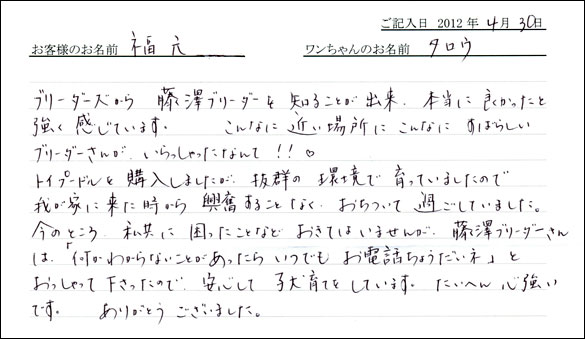 ご記入日 2012年 4月 30日
お客様のお名前 福元 ワンちゃんのお名前 タロウ
ブリーダーズから 藤澤ブリーダーを 知ることが出来、本当に良くかったと
強く感じています。 こんなに近い場所に こんなに すばらしい
ブリーダーさんが、いらっしゃったなんて!!♡
トイプードルを購入しましたが、抜群の環境で育っていましたので
我が家に来た時から 興奮することなく、おちついて 過ごしていました。
今のところ、私共に 困ったことなど おきてはいませんが、藤澤ブリーダーさん
は、「何かわからないことがあったら いつでも お電話ちょうだいネ」と
おっしゃって下さったので、安心して 子犬育てを しています。たいへん 心強い
です。 ありがとう ございました。